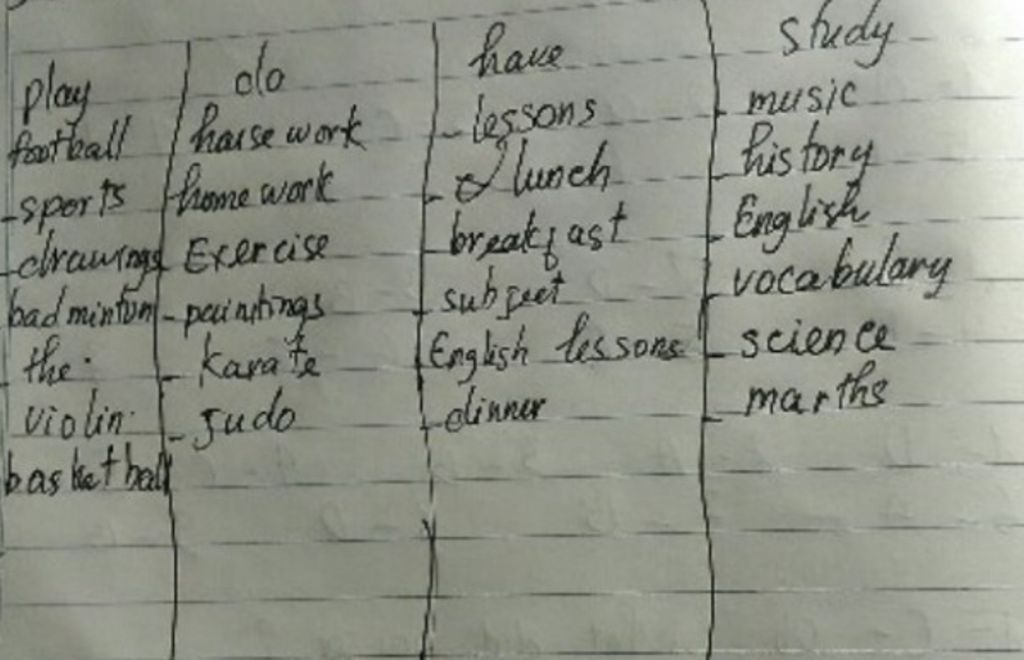 play do have study
football house work lessons music
sports home work lunch history
drawings Exercise breakfast English
badminton paintings subject vocabulary
the karate English lessons science
violin Judo dinner marths
basketball